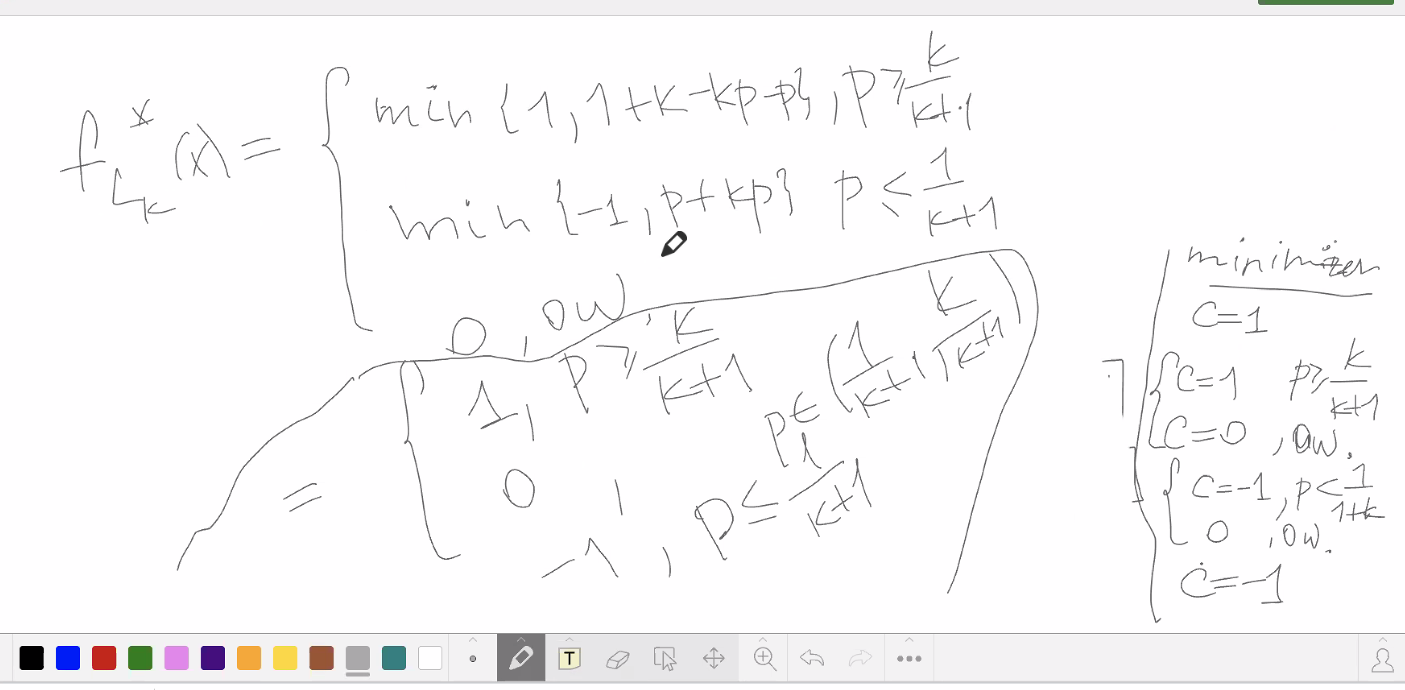 f*_{L_k}(x) = { min {1, 1+k-kp-p}, p ≥ k/(k+1)
min {-1, p+kp} p ≤ 1/(k+1)
0, ow.
= { 1, p ≥ k/(k+1)
0, p ∈ (1/(k+1), k/(k+1))
-1, p ≤ 1/(k+1)
minimizer
C=1
{ C=1 p ≥ k/(k+1)
C=0, ow.
{ C=-1, p < 1/(1+k)
0, ow.
C=-1
T